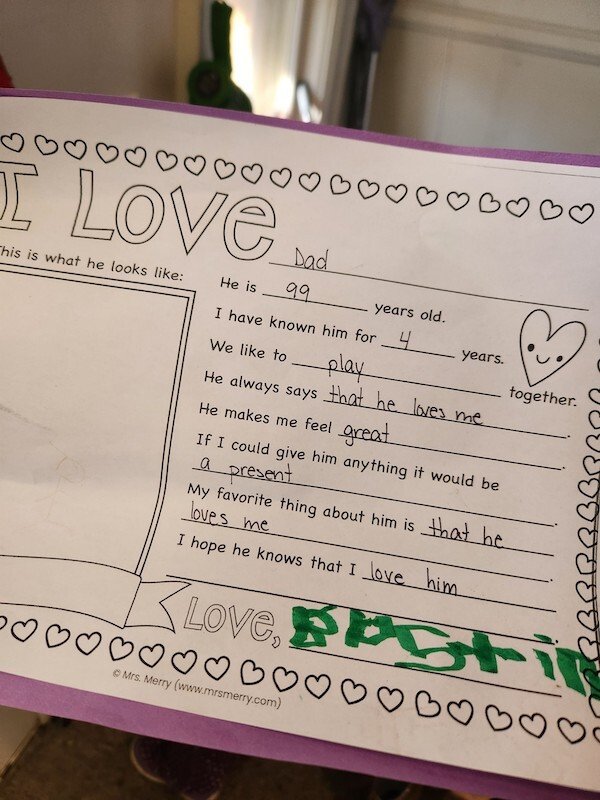 I Love Dad
This is what he looks like:
He is 99 years old.
I have known him for 4 years.
We like to play together.
He always says that he loves me.
He makes me feel great.
If I could give him anything it would be
a present.
My favorite thing about him is that he
loves me.
I hope he knows that I love him
Love,
© Mrs. Merry (www.mrsmerry.com)